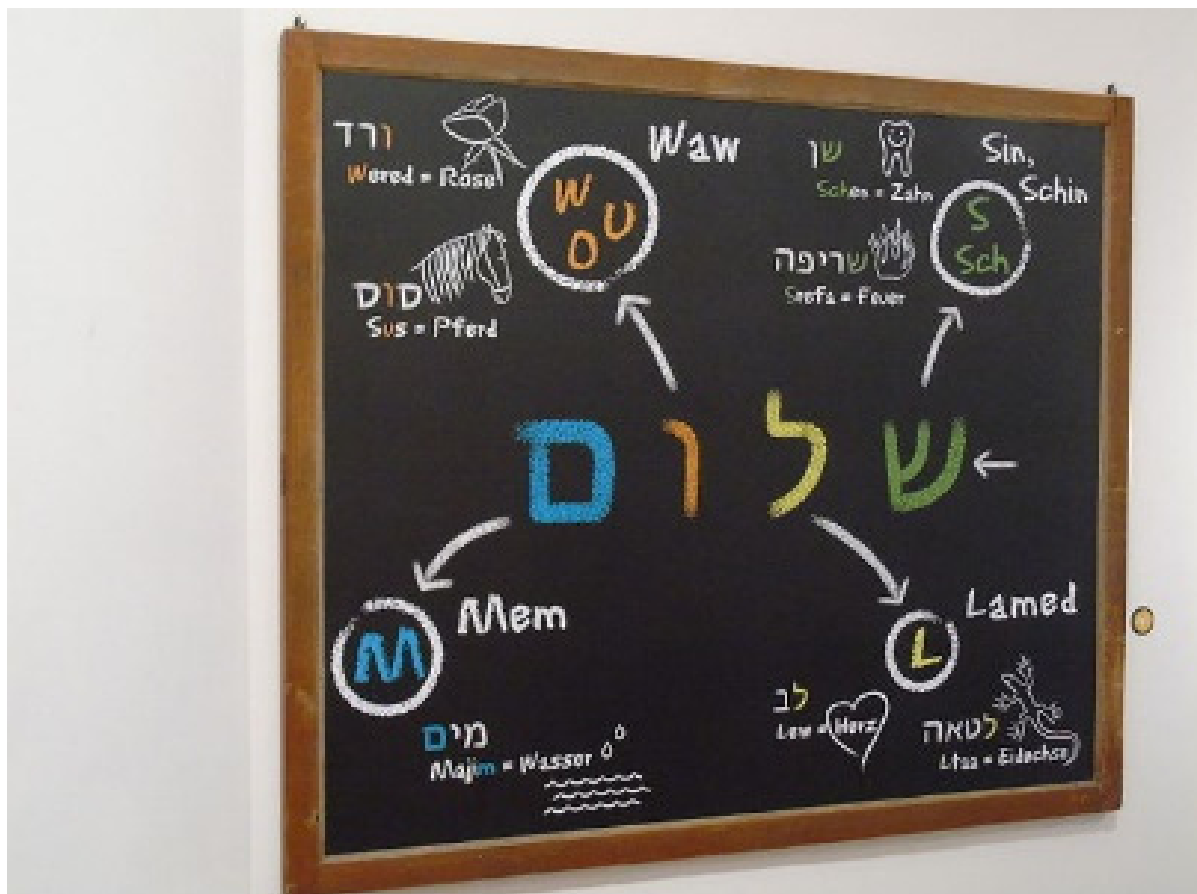 ורד
Wered = Rose
Waw
W U O
סוס
Sus = Pferd
שן
Schen = Zahn
Sin,
Schin
S
Sch
שריפה
Srefa = Feuer
שלום
M
Mem
מים
Majim = Wasser
L
Lamed
לב
Lew = Herz
לטאה
Ltaa = Eidechse